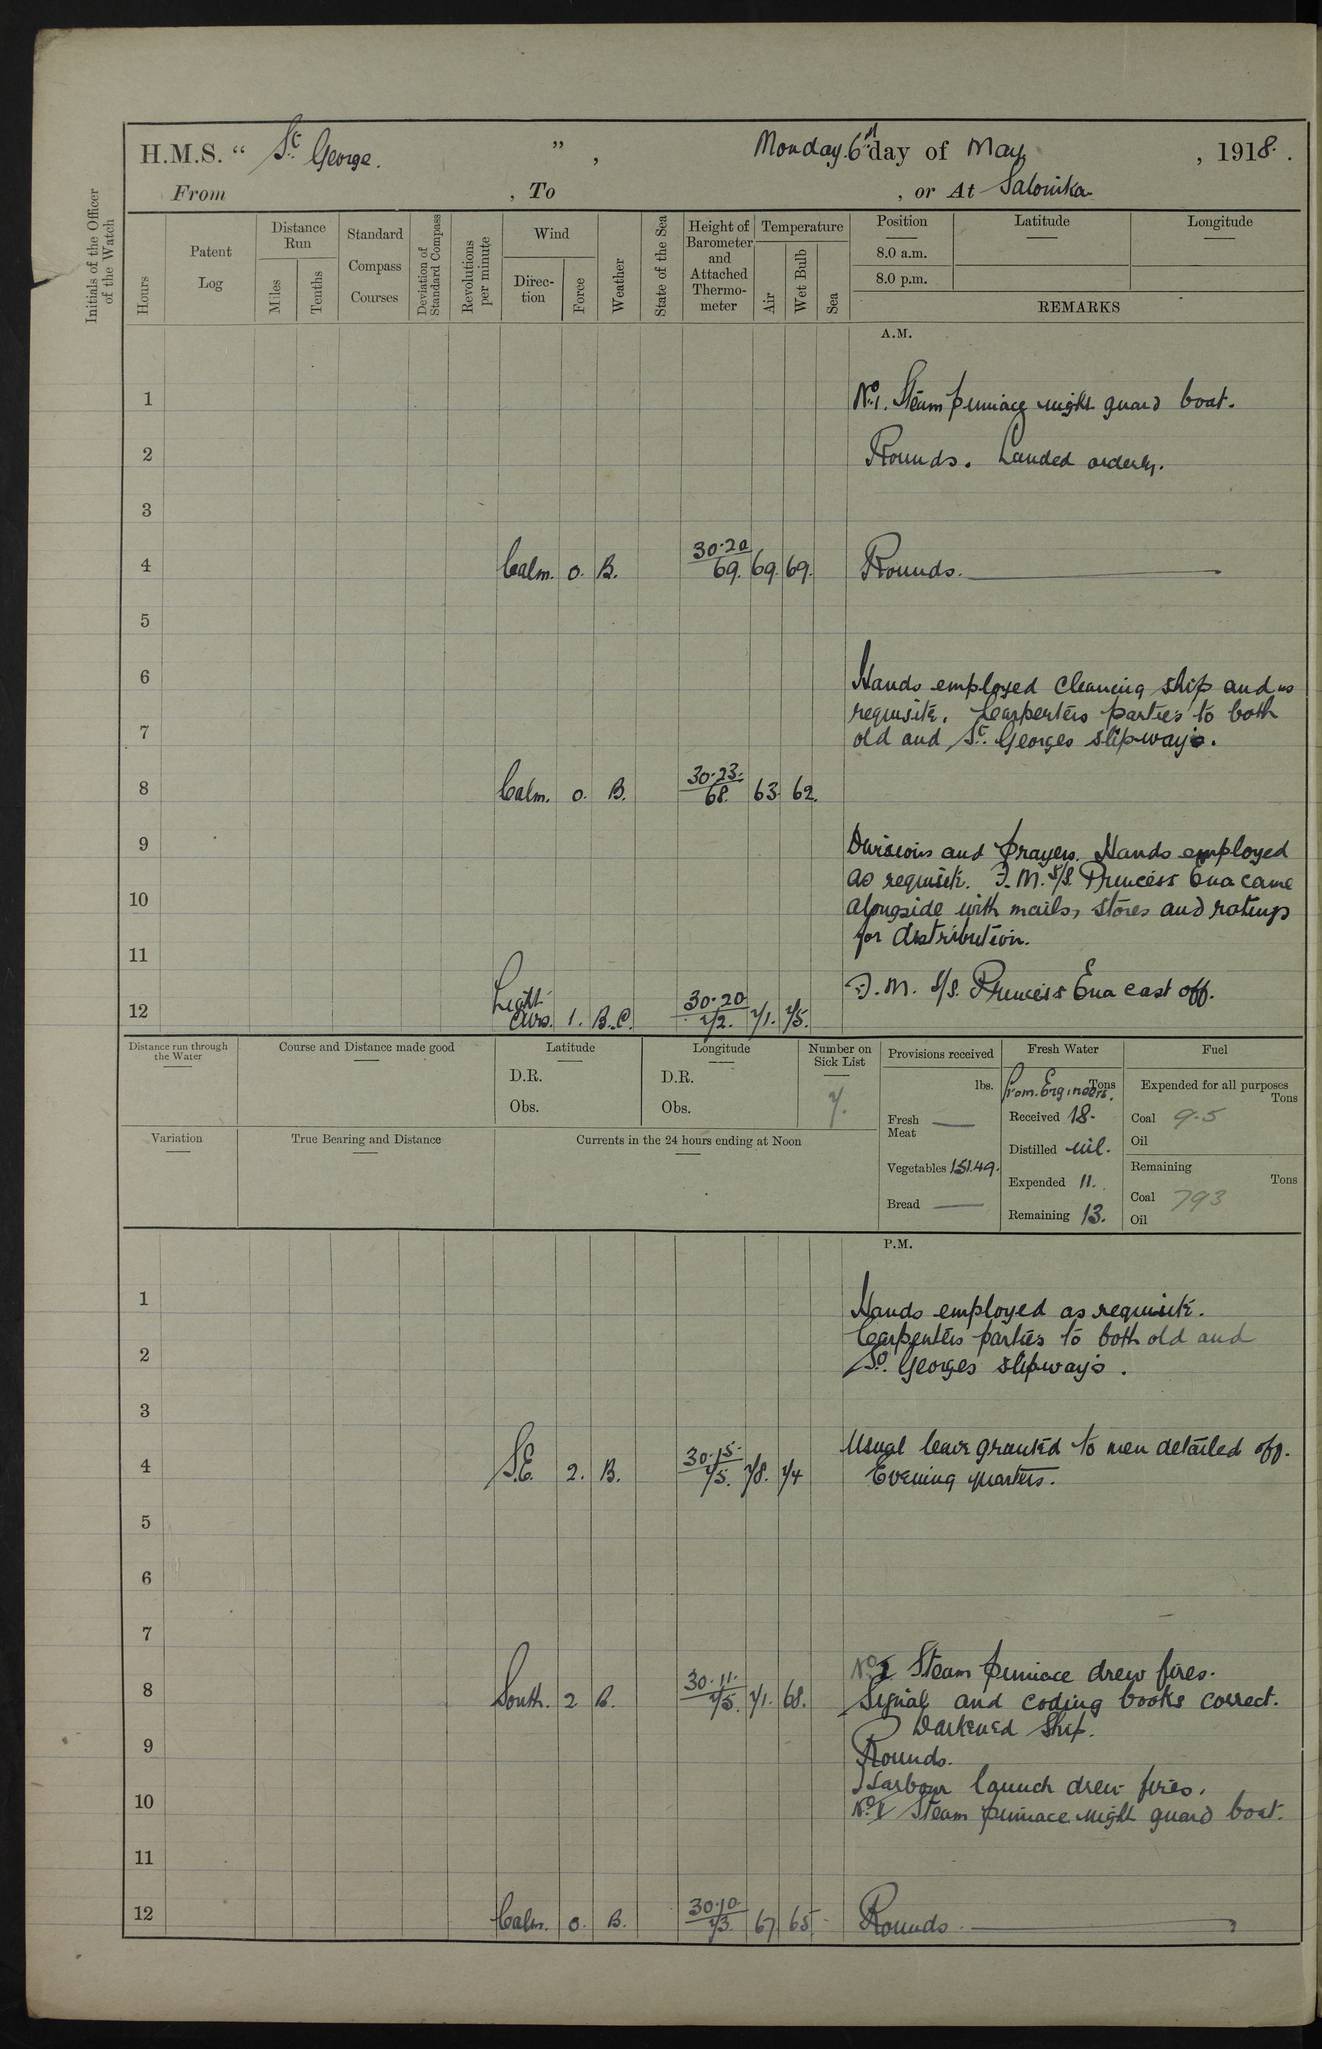 H.M.S. “ St George. ” , Monday 6th day of May , 1918.
From , To , or At Salonika
Initials of the Officer of the Watch
Hours
Patent Log
Distance Run
Miles
Tenths
Standard Compass Courses
Deviation of Standard Compass
Revolutions per minute
Wind
Direction
Force
Weather
State of the Sea
Height of Barometer and Attached Thermometer
Temperature
Air
Wet Bulb
Sea
Position Latitude Longitude
8.0 a.m.
8.0 p.m.
REMARKS
A.M.
1 No. 1. Steam pinnace night guard boat.
2 Rounds. Landed orderly.
3
4 Calm. 0. B. 30.20 69. 69. 69. Rounds.
5
6 Hands employed cleaning ship and as
requisite. Carpenters parties to both
7 old and St. Georges slipways.
8 Calm. 0. B. 30.23. 68. 63. 62.
9 Divisions and prayers. Hands employed
as requisite. F.M. S/S. Princess Ena came
10 alongside with mails, stores and ratings
for distribution.
11
F.M. S/S. Princess Ena cast off.
12 Light airs. 1. B.C. 30.20 72. 71. 75.
Distance run through the Water
Course and Distance made good
Latitude
D.R.
Obs.
Longitude
D.R.
Obs.
Number on Sick List
7.
Provisions received
lbs.
Fresh Meat —
Vegetables 15149.
Bread —
Fresh Water
Tons
From Engineers.
Received 18.
Distilled nil.
Expended 11.
Remaining 13.
Fuel
Expended for all purposes
Tons
Coal 9.5
Oil
Remaining
Tons
Coal 793
Oil
Variation
True Bearing and Distance
Currents in the 24 hours ending at Noon
P.M.
1 Hands employed as requisite.
Carpenters parties to both old and
2 St. Georges slipways.
3
Usual leave granted to men detailed off.
4 S.E. 2. B. 30.15. 75. 78. 74 Evening quarters.
5
6
7
No. 2 Steam pinnace drew fires.
8 South. 2 B. 30.11. 75. 71. 68. Signal and coding books correct.
Darkened Ship.
9 Rounds.
Harbour launch drew fires.
10 No. 1 Steam pinnace night guard boat.
11
12 Calm. 0. B. 30.10 73. 67 65. Rounds.